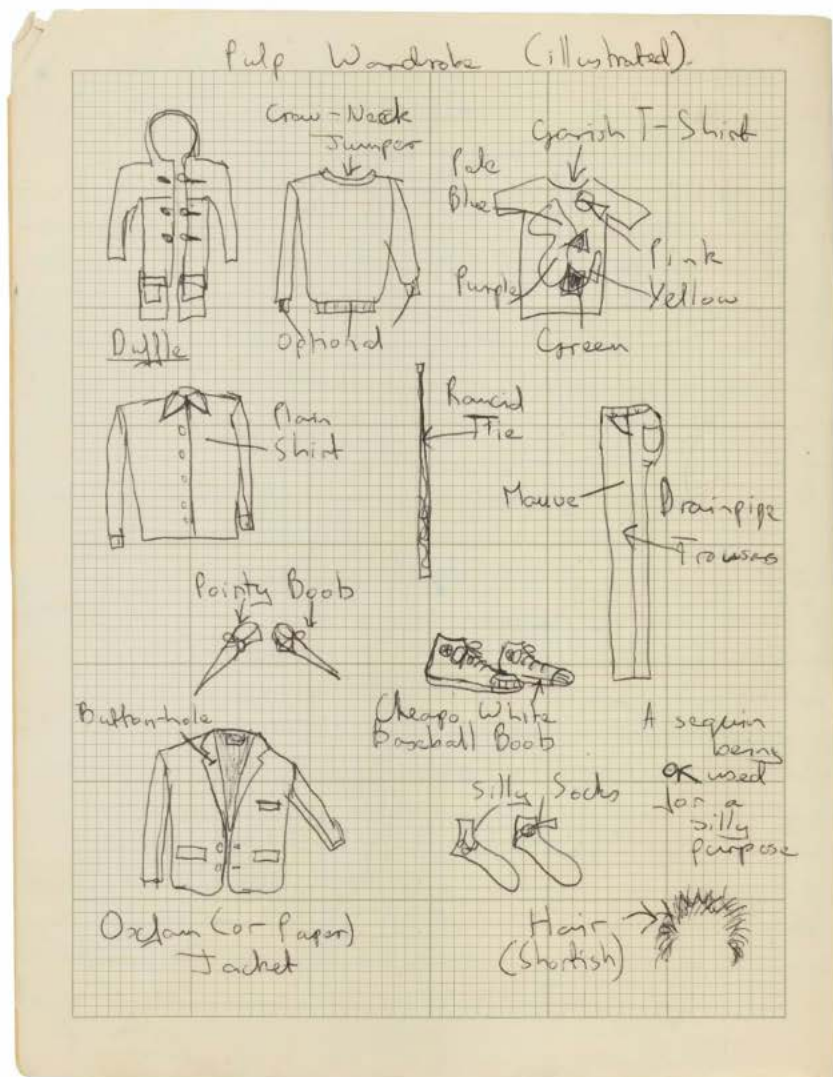 Pulp Wardrobe (illustrated).
Crew-Neck
Jumper
Garish T-Shirt
Pale
Blue
Pink
Purple
Yellow
Duffle
Optional
Green
Plain
Shirt
Rancid
Tie
Mauve
Drainpipe
Trousers
Pointy Boots
Button-hole
Cheapo White
Baseball Boots
A sequin
being
used
for a
silly
purpose
Silly Socks
Oxfam (or Paper)
Jacket
Hair
(Shortish)